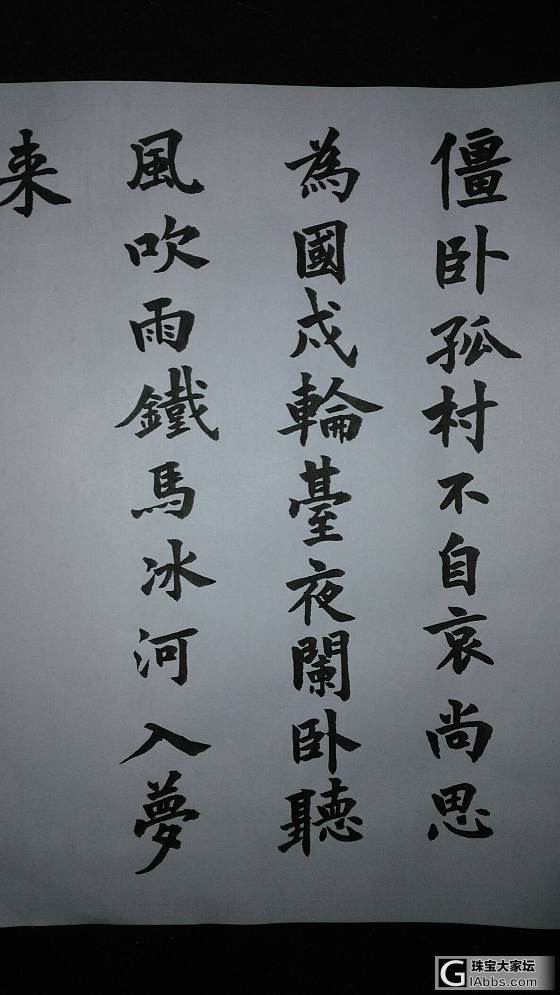 僵卧孤村不自哀尚思
為國戍輪臺夜闌卧聽
風吹雨鐵馬冰河入夢
来
G 珠宝大家坛
GIAbbs.com